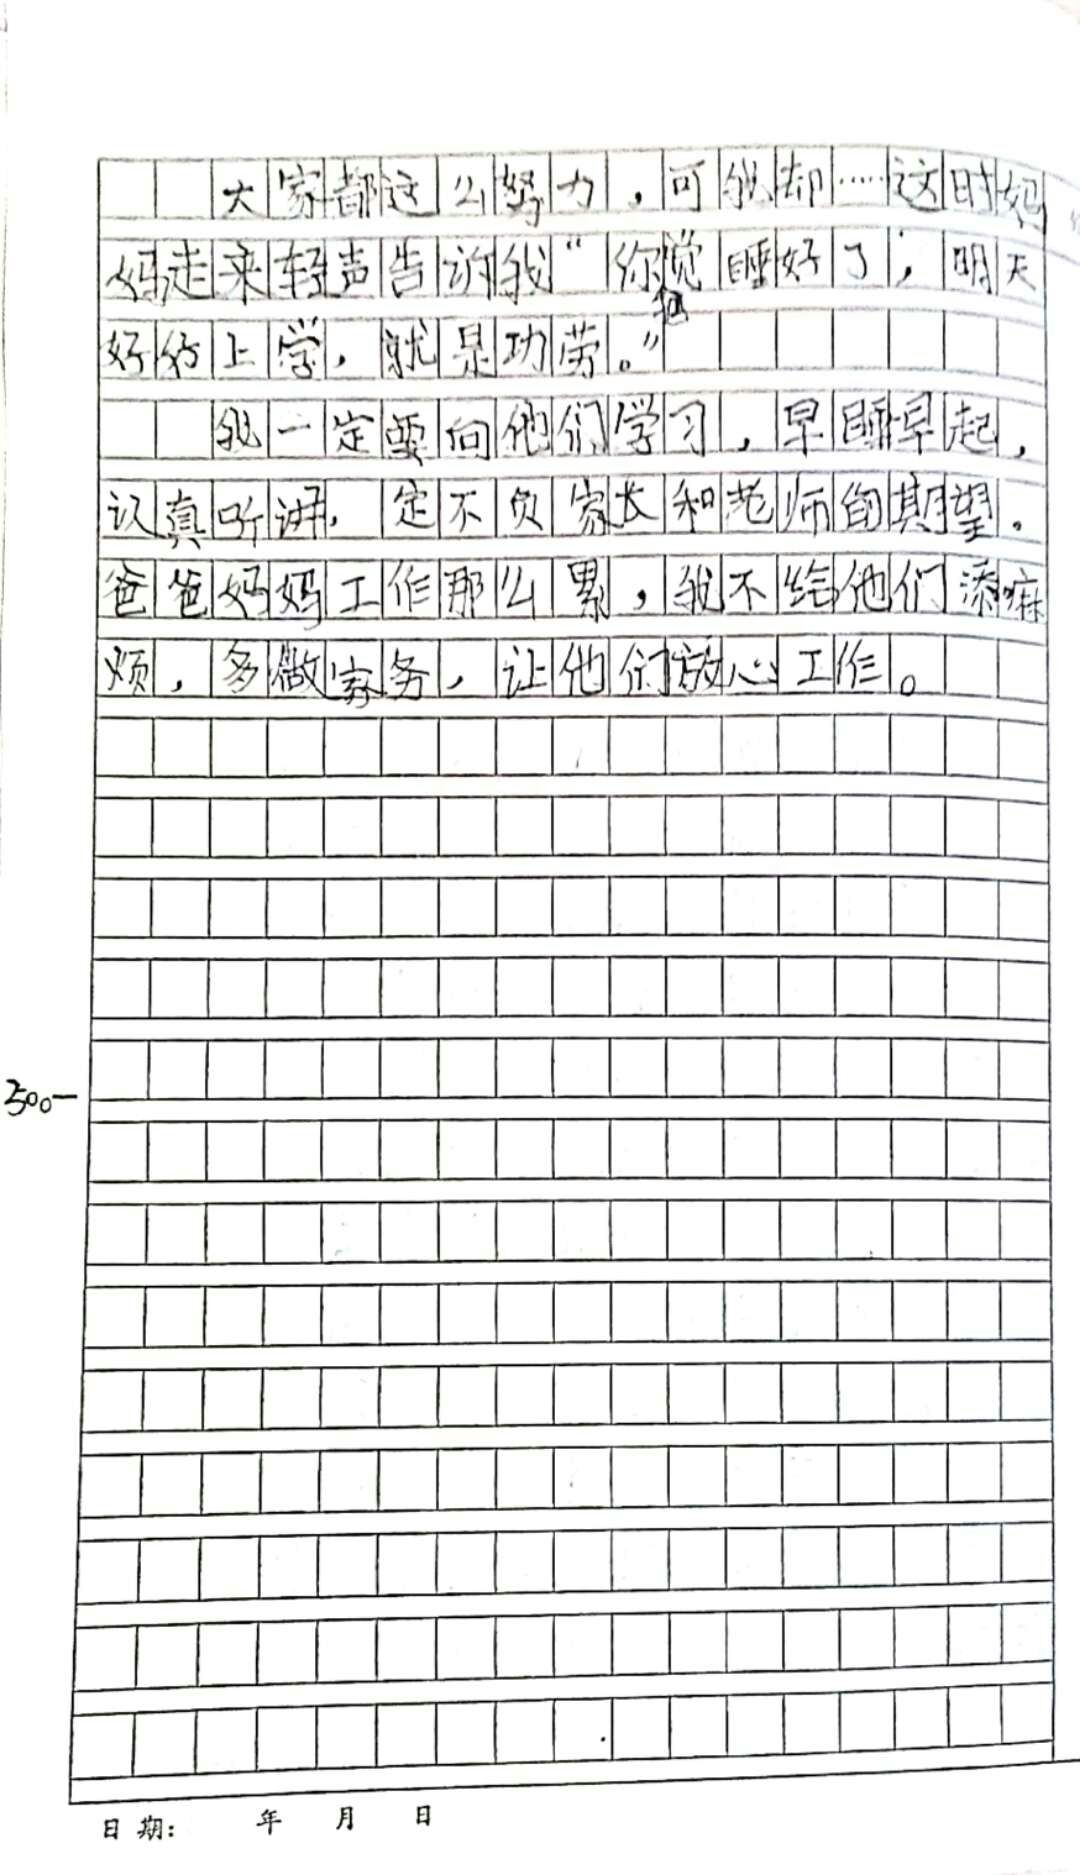 大家都这么努力，可我却……这时妈
妈走来轻声告诉我“你觉睡好了，明天
好彷上学，就是功劳。”
我一定要向他们学习，早睡早起，
认真听讲，定不负家长和老师的期望。
爸爸妈妈工作那么累，我不给他们添麻
烦，多做家务，让他们放心工作。
500
日期： 年 月 日